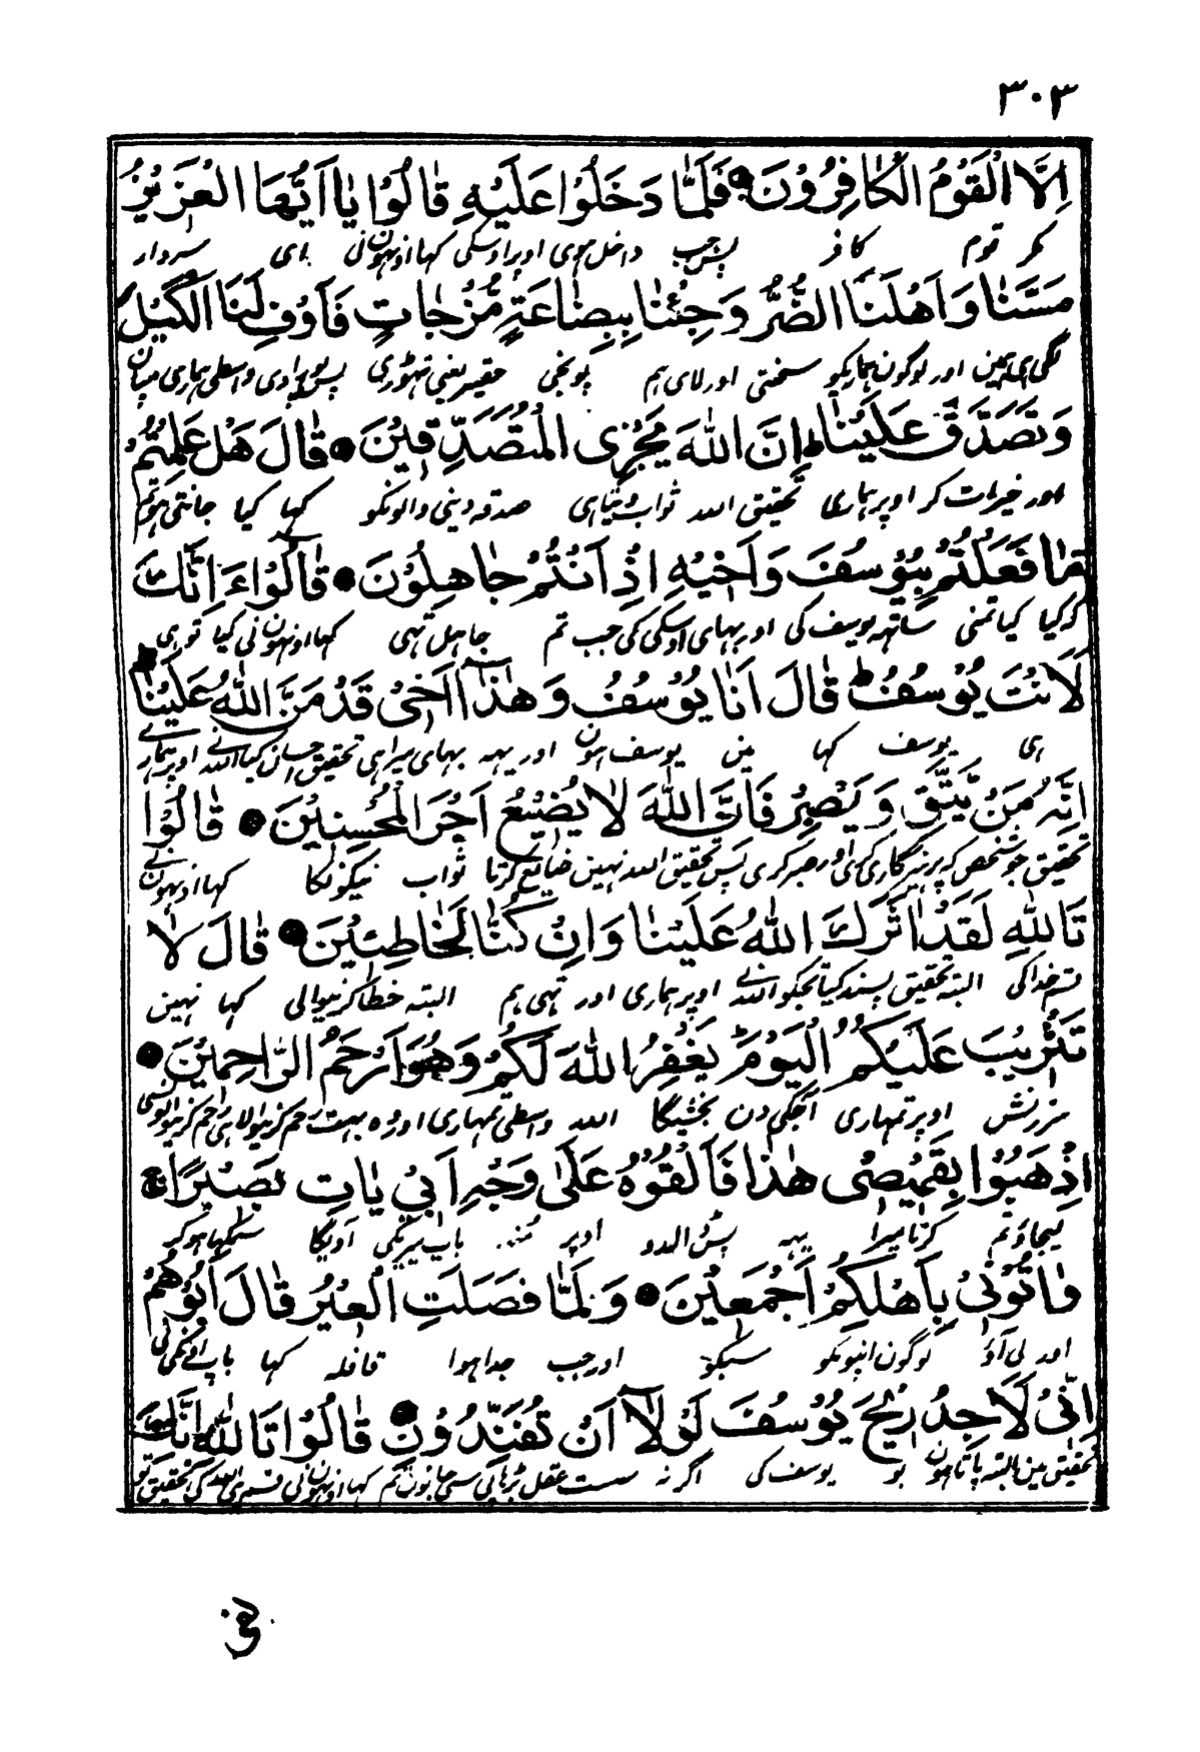 ٣٠٣
اِلَّا الْقَوْمُ الْكٰافِرُوْنَ فَلَمَّا دَخَلُوْا عَلَيْهِ قٰالُوْا يٰا اَيُّهَا الْعَزِيْزُ
مگر قوم کافر پس جب داخل ہوی اوپر اوسکی کہا اونہون نی ای سردار
مَسَّنٰا وَ اَهْلَنَا الضُّرُّ وَ جِئْنٰا بِبِضٰاعَةٍ مُّزْجٰاتٍ فَاَوْفِ لَنَا الْكَيْلَ
لگی ہی ہمین اور لوگون ہماریکو سختی اور لای ہم پونجی حقیر یعنی تہوڑی پس پورا دی واسطی ہماری میپان
وَ تَصَدَّقْ عَلَيْنٰا اِنَّ اللّٰهَ يَجْزِى الْمُتَصَدِّقِيْنَ قٰالَ هَلْ عَلِمْتُمْ
اور خیرات کر اوپر ہماری تحقیق اللہ ثواب دیتا ہی صدقہ دینی والونکو کہا کیا جانتی ہو تم
مٰا فَعَلْتُمْ بِيُوْسُفَ وَ اَخِيْهِ اِذْ اَنْتُمْ جٰاهِلُوْنَ قٰالُوْا ءَاِنَّكَ
کہ کیا کیا تمنی ساتہہ یوسف کی اور بہای اوسکی کی جب تم جاہل تہی کہا اونہون نی کیا تو ہی
لَاَنْتَ يُوْسُفُ قٰالَ اَنَا يُوْسُفُ وَ هٰذٰا اَخِىْ قَدْ مَنَّ اللّٰهُ عَلَيْنٰا
ہی یوسف کہا مین یوسف ہون اور یہہ بہای میرا ہی تحقیق احسان کیا اللہ نے اوپر ہمارے
اِنَّهُ مَنْ يَّتَّقِ وَ يَصْبِرْ فَاِنَّ اللّٰهَ لٰا يُضِيْعُ اَجْرَ الْمُحْسِنِيْنَ قٰالُوْا
تحقیق جو شخص کہ پرہیزکاری کری اور صبر کری پس تحقیق اللہ نہین ضایع کرتا ثواب نیکونکا کہا اونہون نے
تَاللّٰهِ لَقَدْ اٰثَرَكَ اللّٰهُ عَلَيْنٰا وَ اِنْ كُنَّا لَخٰاطِئِيْنَ قٰالَ لٰا
قسم خدا کی البتہ تحقیق پسند کیا تجکو اللہ نے اوپر ہماری اور تہی ہم البتہ خطا کرنیوالی کہا نہین
تَثْرِيْبَ عَلَيْكُمُ الْيَوْمَ يَغْفِرُ اللّٰهُ لَكُمْ وَ هُوَ اَرْحَمُ الرّٰاحِمِيْنَ
سرزنش اوپر تمہاری آجکی دن بخشیگا اللہ واسطی تمہاری اور وہ بہت رحم کرنیوالا ہی رحم کرنیوالونسی
اِذْهَبُوْا بِقَمِيْصِىْ هٰذٰا فَاَلْقُوْهُ عَلٰى وَجْهِ اَبِىْ يٰاتِ بَصِيْرًا
لیجاؤ تم کرتا میرا یہہ پس الدو اوپر منہ باپ میریکی آویگا سنکہا ہوکر
وَاْتُوْنِىْ بِاَهْلِكُمْ اَجْمَعِيْنَ وَ لَمَّا فَصَلَتِ الْعِيْرُ قٰالَ اَبُوْهُمْ
اور لی آؤ لوگون اپنونکو سبکو اور جب جدا ہوا قافلہ کہا باپ اونکی نی
اِنِّىْ لَاَجِدُ رِيْحَ يُوْسُفَ لَوْلٰا اَنْ تُفَنِّدُوْنِ قٰالُوْا تَاللّٰهِ اِنَّكَ
تحقیق مین البتہ پاتا ہون بو یوسف کی اگر نہ سست عقل کہا اونہون نی قسم ہی اللہ کی تحقیق تو